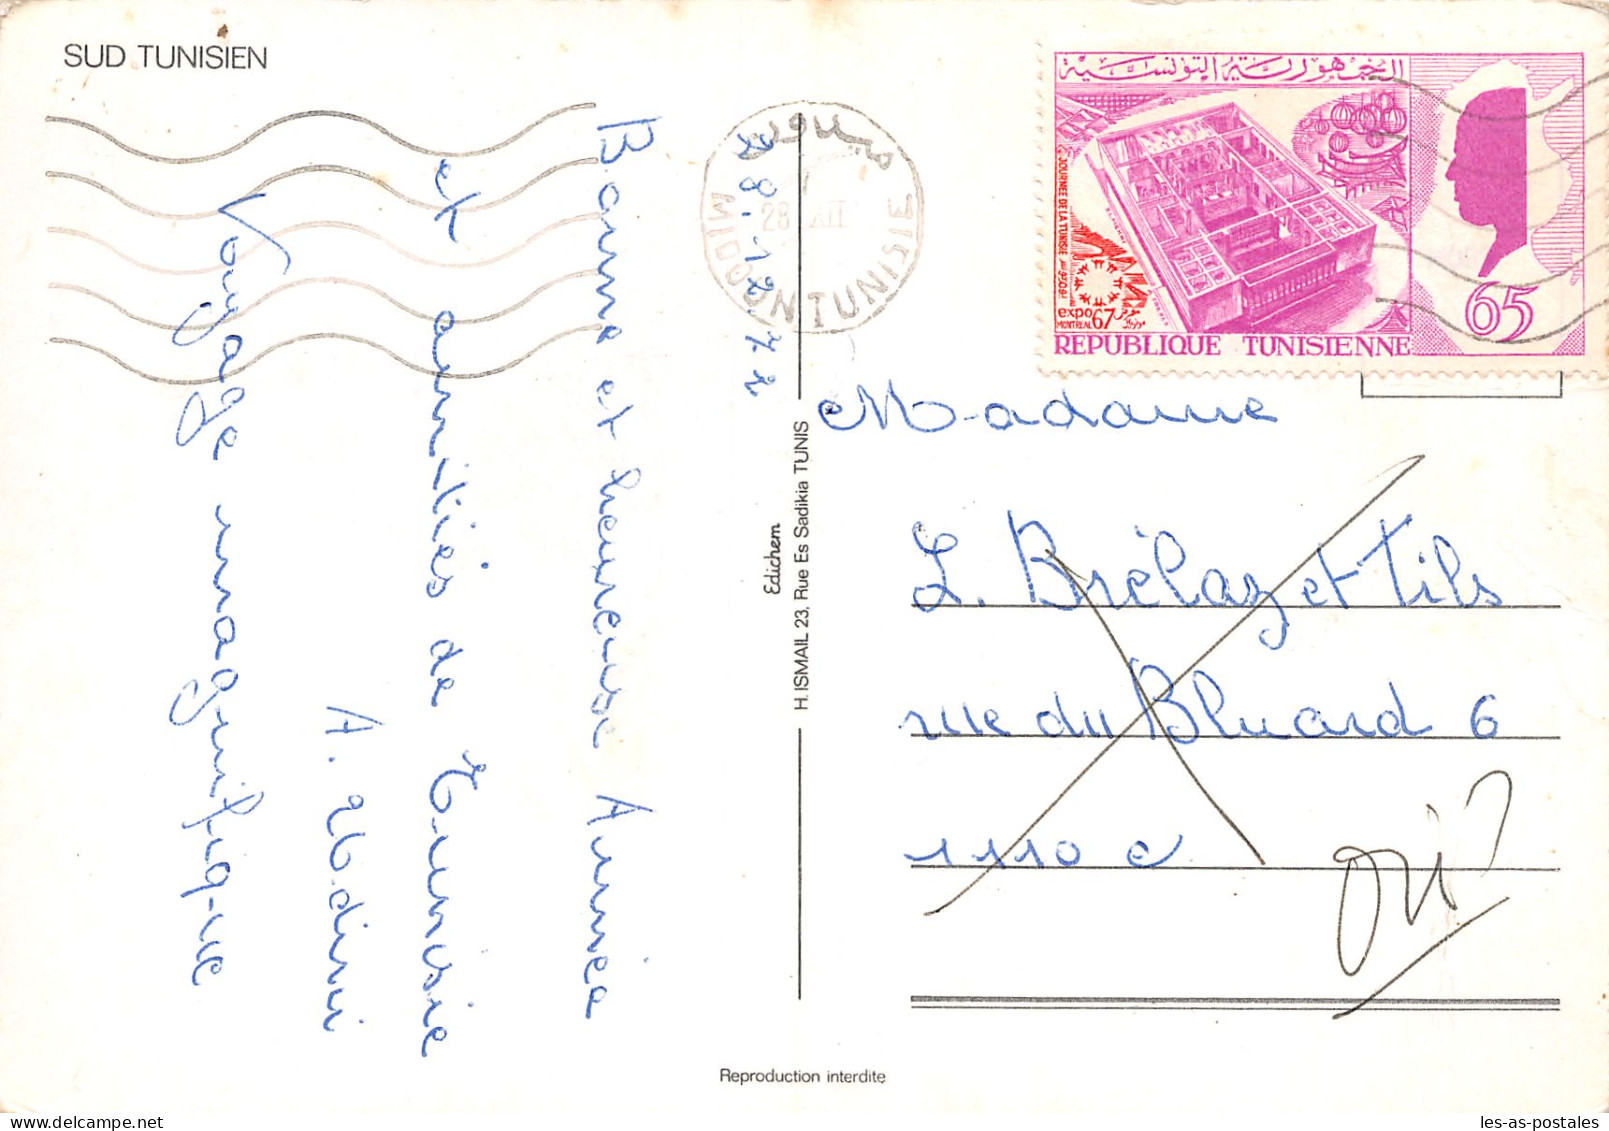 SUD TUNISIEN
28.12.72
Bonne et heureuse Année
et amitiés de Tunisie
A. Udini
Voyage magnifique
ميدون
28 XII
MIDOUN TUNISIE
الجمهورية التونسية
JOURNEE DE LA TUNISIE
expo67
MONTREAL
REPUBLIQUE TUNISIENNE
65
Edichem
H. ISMAIL 23, Rue Es Sadikia TUNIS
Madame
L. Brélaz et Fils
rue du Bluard 6
1110
Reproduction interdite
les-as-postales